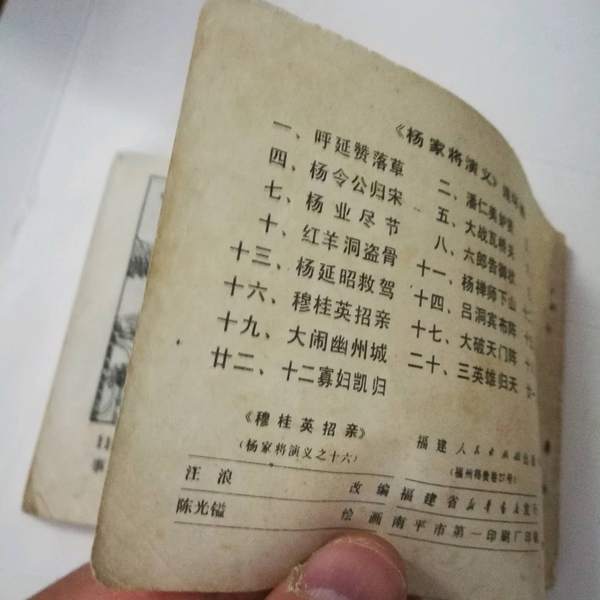 《杨家将演义》连环画
一、呼延赞落草 二、潘仁美
四、杨令公归宋 五、大战瓦桥关
七、杨业尽节 八、六郎告御状
十、红羊洞盗骨 十一、杨禅师下山
十三、杨延昭救驾 十四、吕洞宾布阵
十六、穆桂英招亲 十七、大破天门阵
十九、大闹幽州城 二十、三英雄归天
廿二、十二寡妇凯归
《穆桂英招亲》 福建人民出版社出版
（杨家将演义之十六） （福州得贵巷27号）
汪浪 改编 福建省新华书店发行
陈光镒 绘画 南平市第一印刷厂印刷